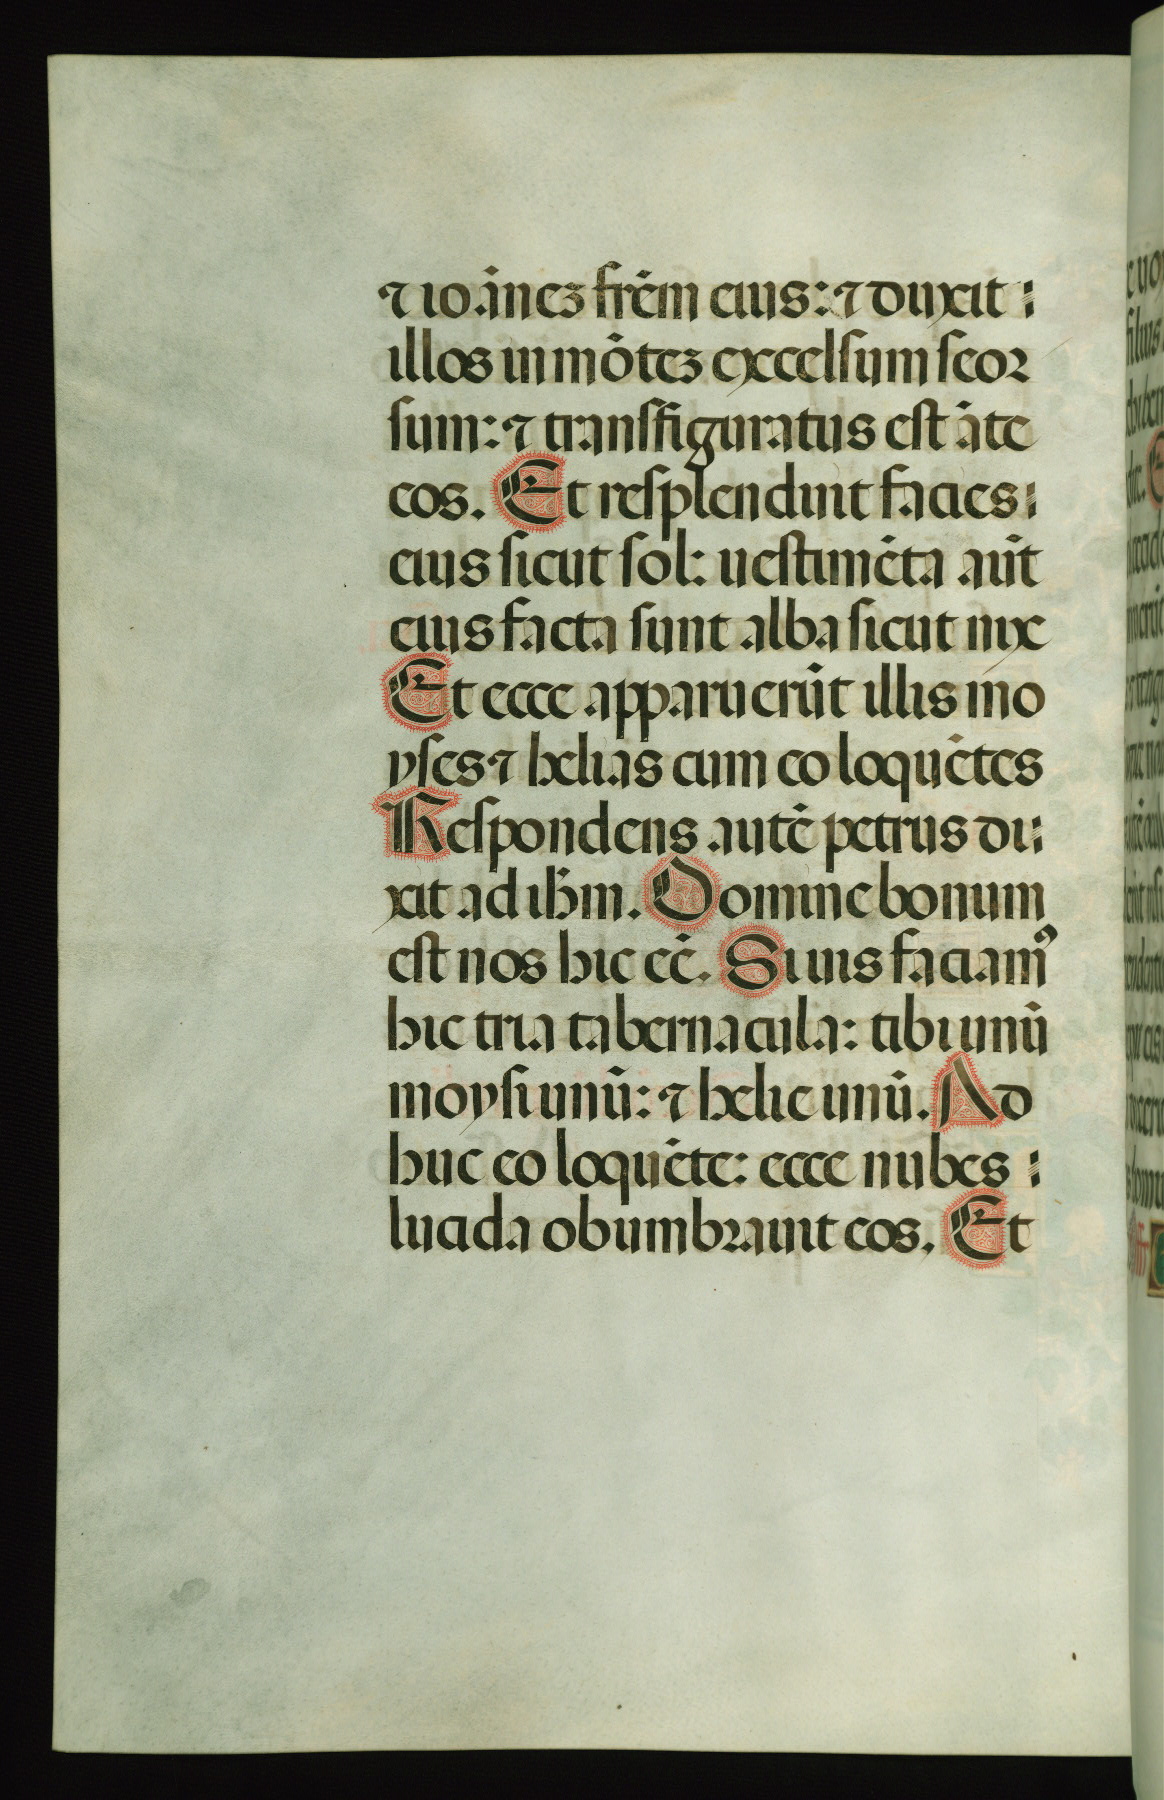 ⁊ ioānez frēm eius: ⁊ duxit
illos in mōtez excelsum seor
sum: ⁊ transfiguratus est āte
eos. Et resplenduit facies
eius sicut sol: uestimēta aūt
eius facta sunt alba sicut nix
Et ecce apparuerūt illis mo
yses ⁊ helias cum eo loquētes
Respondens autē petrus di
xit ad ihm̄. Domine bonum
est nos hic eē. Si uis faciamꝰ
hic tria tabernacula: tibi unū
moysi unū: ⁊ helie unū. Ad
huc eo loquēte: ecce nubes
lucida obumbrauit eos. Et